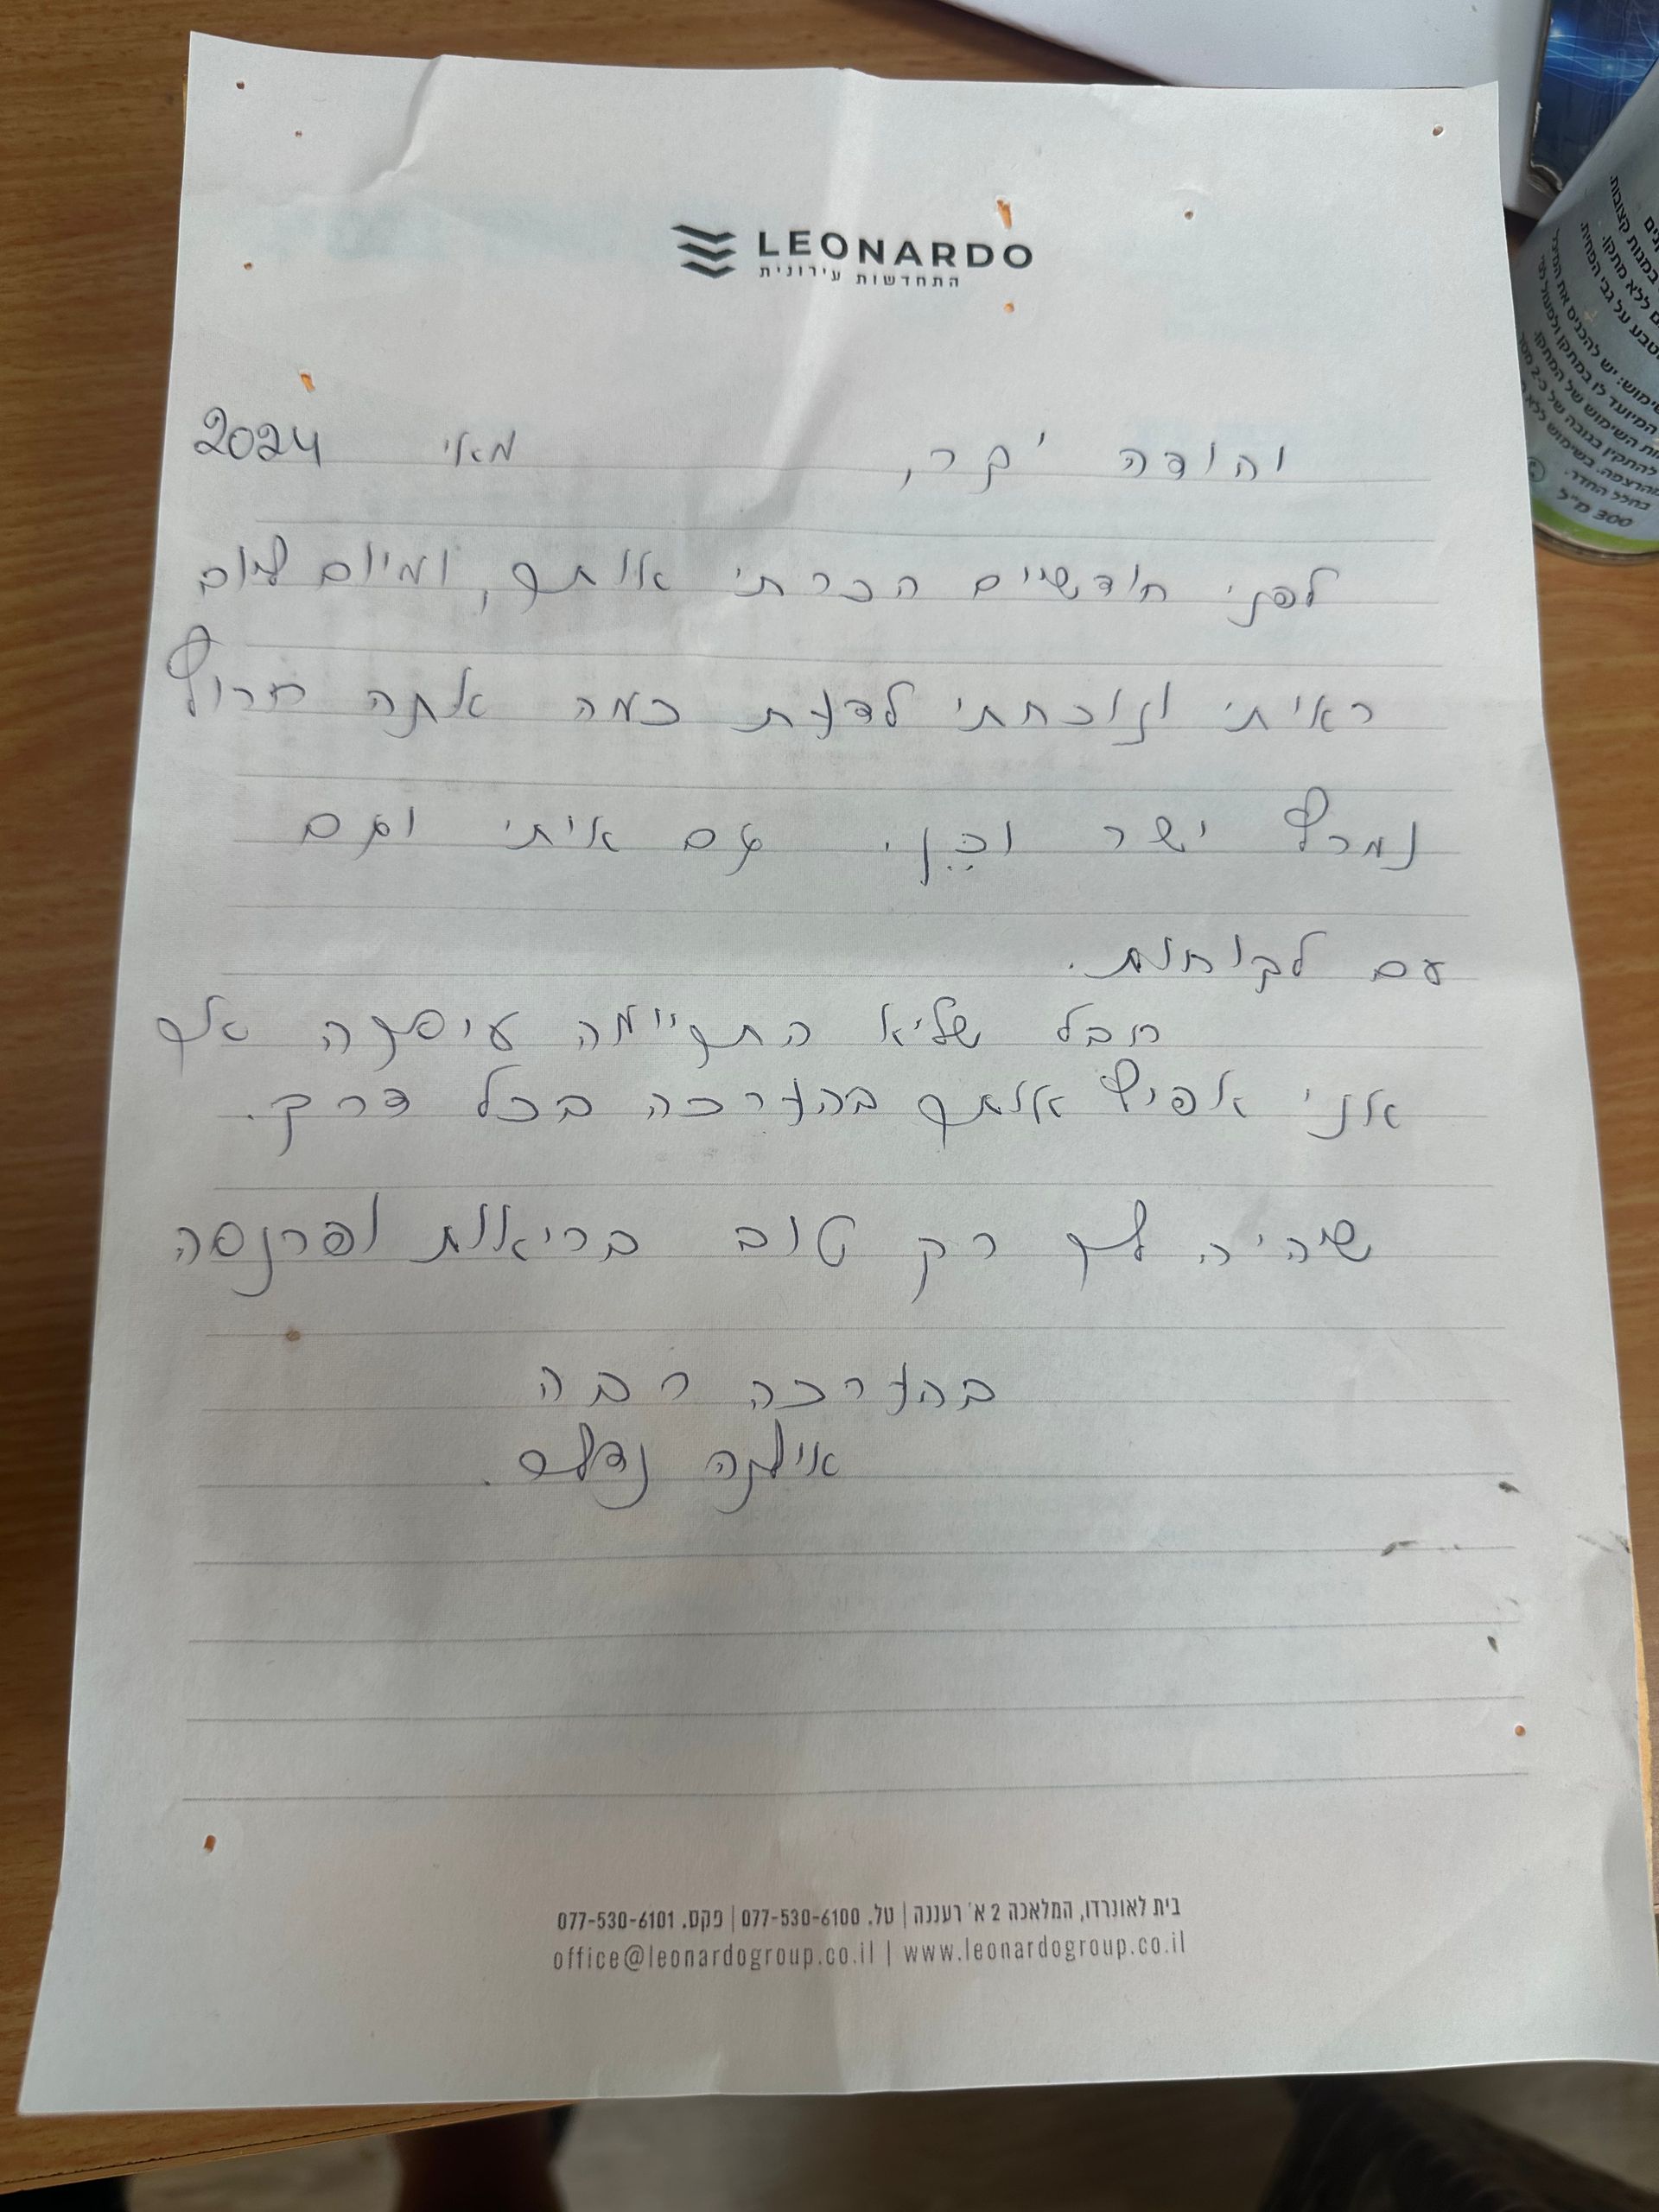 LEONARDO
התחדשות עירונית
יהודה יקר, מאי 2024
לפני חודשיים הכרתי אותך, ומיום ליום
ראיתי ונוכחתי לדעת כמה אתה חרוץ
נמרץ ישר וכֵן. גם איתי וגם
עם לקוחות.
חבל שלא התקיימה עיסקה אך
אני אפיץ אותך בהערכה בכל דרך.
שיהיה לך רק טוב בריאות ופרנסה
בהערכה רבה
אילנה
בית לאונרדו, המלאכה 2 א' רעננה | טל. 077-530-6100 | פקס. 077-530-6101
office@leonardogroup.co.il | www.leonardogroup.co.il
300 מ"ל